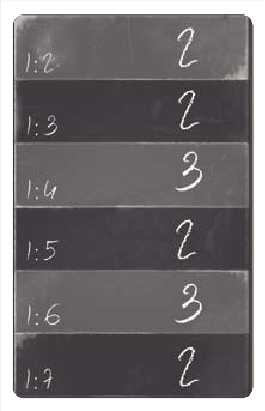 1:2 2
1:3 2
1:4 3
1:5 2
1:6 3
1:7 2